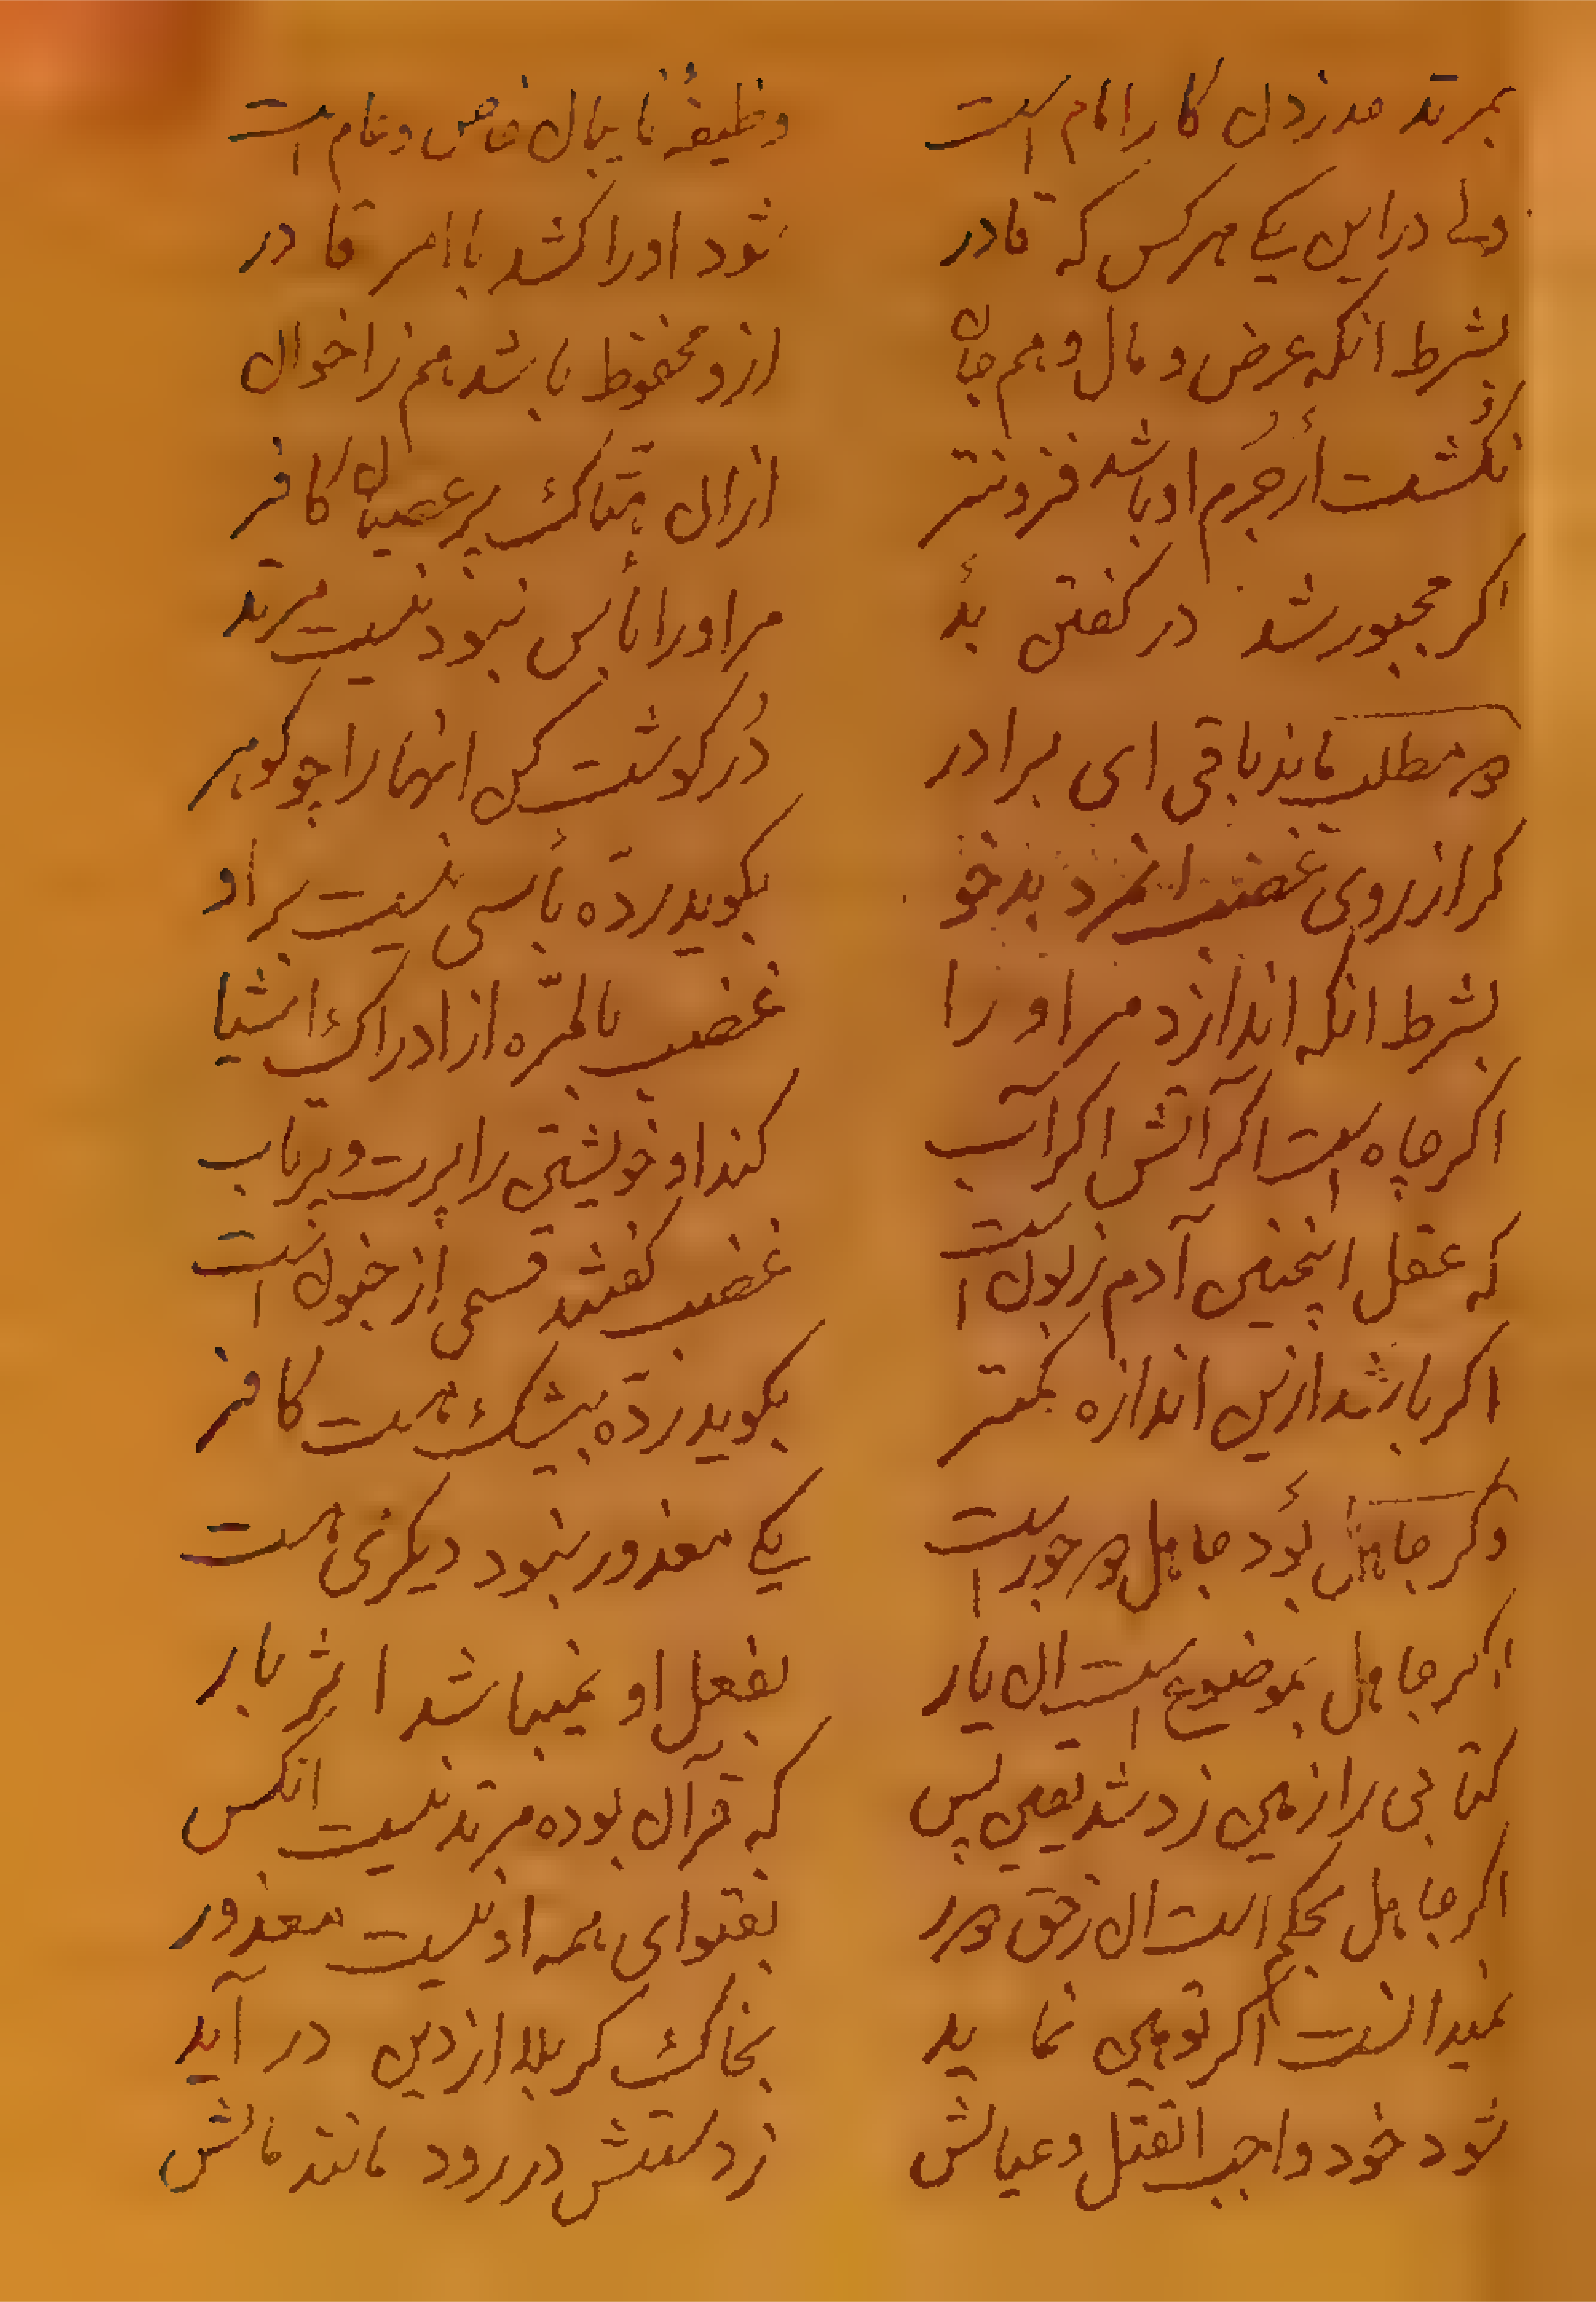 بمرتد حد زدن کار امام است وظیفهٔ نایبان خاص و عام است
ولی در این یکی هرکس که قادر شود او را کشد با امر قادر
بشرط انکه عرض و مال و هم جان ازو محفوظ باشد هم ز اخوان
نکُشت ار جُرم او باشد فزونتر ازان هتّاک پر عصیان کافر
اکر مجبور شد در کفتن بد مر او را بأس نبود نیست مرتد
دو مطلب ماند باقی ای برادر دُر کوشت کن انها را چو کوهر
کر از روی غضب انمرد بدخو بکوید ردّه بأسی نیست بر او
بشرط انکه اندازد مر او را غضب بالمرّه از ادراک اشیا
اکر چاه است اکر آتش اکر آب کند او خویشتن را پرت و پرتاب
که عقل اینچنین آدم زبون است غضب کفتند قسمی از جنون است
اکر باشد ازین اندازه کمتر بکوید ردّه بیشک هست کافر
وکر جاهل بود جاهل دو جور است یکی معذور نبود دیکری هست
اکر جاهل بموضوع است ان یار بفعل او نمیباشد اثر بار
کتابی را زمین زد شد یقین پس که قرآن بوده مرتد نیست انکس
اکر جاهل بحکم است ان ز حق دور بفتوای همه او نیست معذور
نمیدانست اکر توهین نماید بخاک کربلا از دین در آید
شود خود واجب القتل و عیالش ز دستش در رود مانند مالش